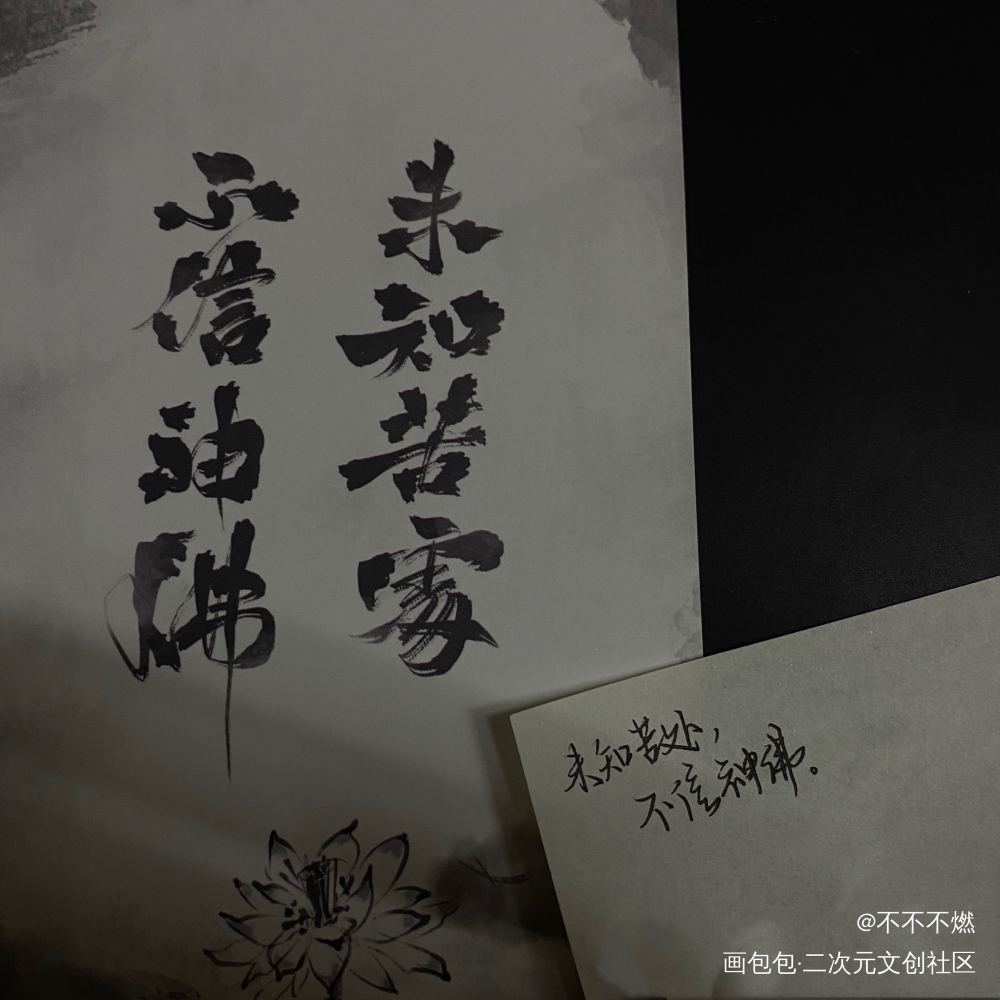 未知苦處
不信神佛
未知苦处，
不信神佛。
@不不不燃
画包包·二次元文创社区